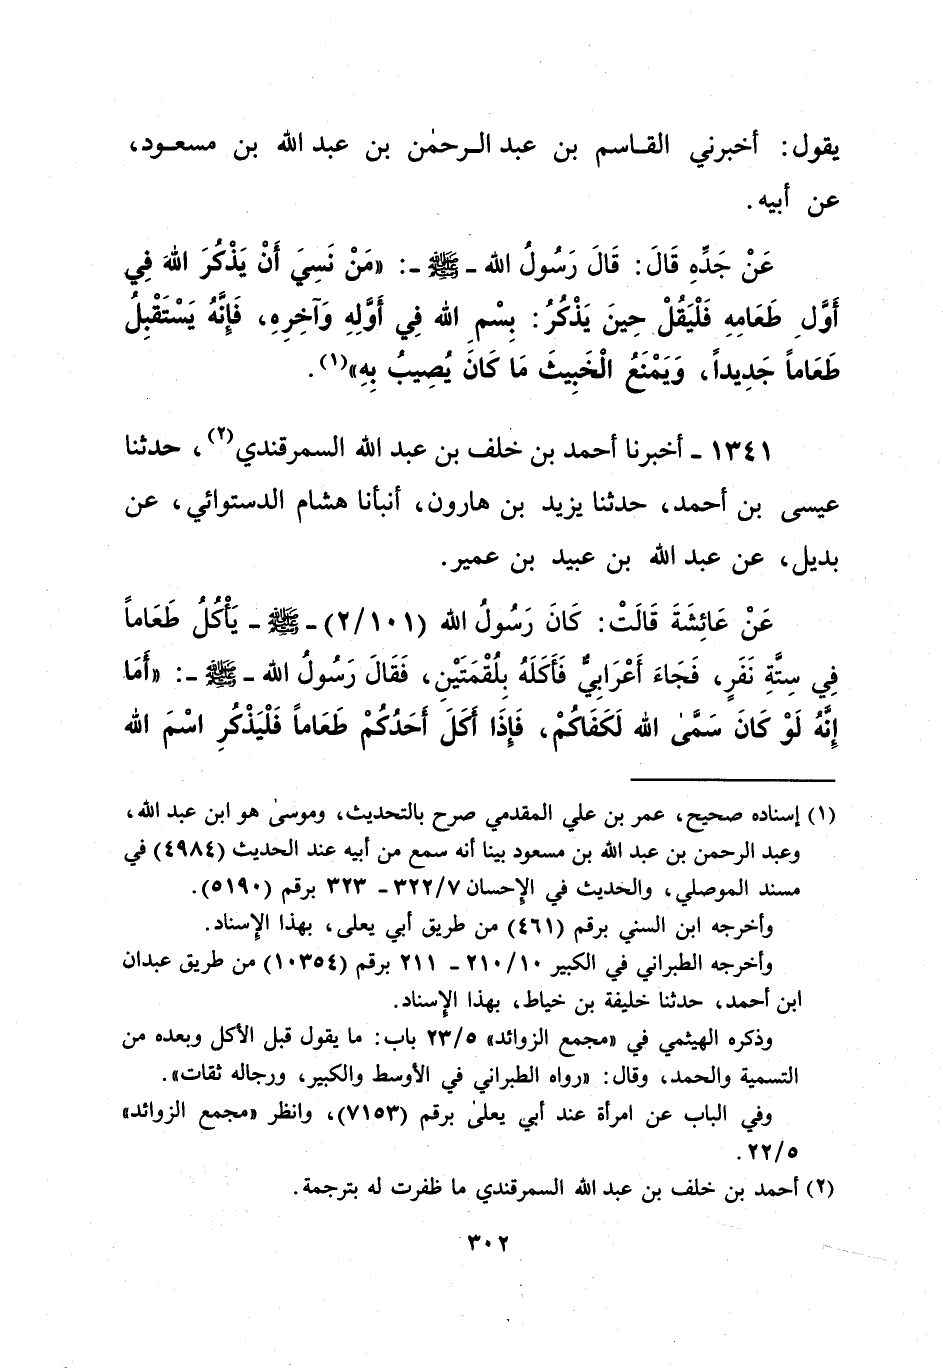 يقول: أخبرني القـاسم بن عبد الـرحمٰن بن عبد الله بن مسعـود،
عن أبيه.
عَنْ جَدِّهِ قَالَ: قَالَ رَسُولُ الله - ﷺ -: «مَنْ نَسِيَ أَنْ يَذْكُرَ اللهَ فِي
أَوَّلِ طَعَامِهِ فَلْيَقُلْ حِينَ يَذْكُرُ: بِسْمِ الله فِي أَوَّلِهِ وَآخِرِهِ، فَإِنَّهُ يَسْتَقْبِلُ
طَعَاماً جَدِيداً، وَيَمْنَعُ الْخَبِيثَ مَا كَانَ يُصِيبُ بِهِ»(١).
١٣٤١ - أخبرنا أحمد بن خلف بن عبد الله السمرقندي(٢)، حدثنا
عيسى بن أحمد، حدثنا يزيد بن هارون، أنبأنا هشام الدستوائي، عن
بديل، عن عبد الله بن عبيد بن عمير.
عَنْ عَائِشَةَ قَالَتْ: كَانَ رَسُولُ الله (٢/١٠١) - ﷺ - يَأْكُلُ طَعَاماً
فِي سِتَّةِ نَفَرٍ، فَجَاءَ أَعْرَابِيٌّ فَأَكَلَهُ بِلُقْمَتَيْنِ، فَقَالَ رَسُولُ الله - ﷺ -: «أَمَا
إِنَّهُ لَوْ كَانَ سَمَّىٰ الله لَكَفَاكُمْ، فَإِذَا أَكَلَ أَحَدُكُمْ طَعَاماً فَلْيَذْكُرِ اسْمَ الله
(١) إسناده صحيح، عمر بن علي المقدمي صرح بالتحديث، وموسىٰ هو ابن عبد الله،
وعبد الرحمن بن عبد الله بن مسعود بينا أنه سمع من أبيه عند الحديث (٤٩٨٤) في
مسند الموصلي، والحديث في الإحسان ٣٢٢/٧ - ٣٢٣ برقم (٥١٩٠).
وأخرجه ابن السني برقم (٤٦١) من طريق أبي يعلى، بهذا الإسناد.
وأخرجه الطبراني في الكبير ٢١٠/١٠ - ٢١١ برقم (١٠٣٥٤) من طريق عبدان
ابن أحمد، حدثنا خليفة بن خياط، بهذا الإسناد.
وذكره الهيثمي في «مجمع الزوائد» ٢٣/٥ باب: ما يقول قبل الأكل وبعده من
التسمية والحمد، وقال: «رواه الطبراني في الأوسط والكبير، ورجاله ثقات».
وفي الباب عن امرأة عند أبي يعلىٰ برقم (٧١٥٣)، وانظر «مجمع الزوائد»
٢٢/٥.
(٢) أحمد بن خلف بن عبد الله السمرقندي ما ظفرت له بترجمة.
٣٠٢